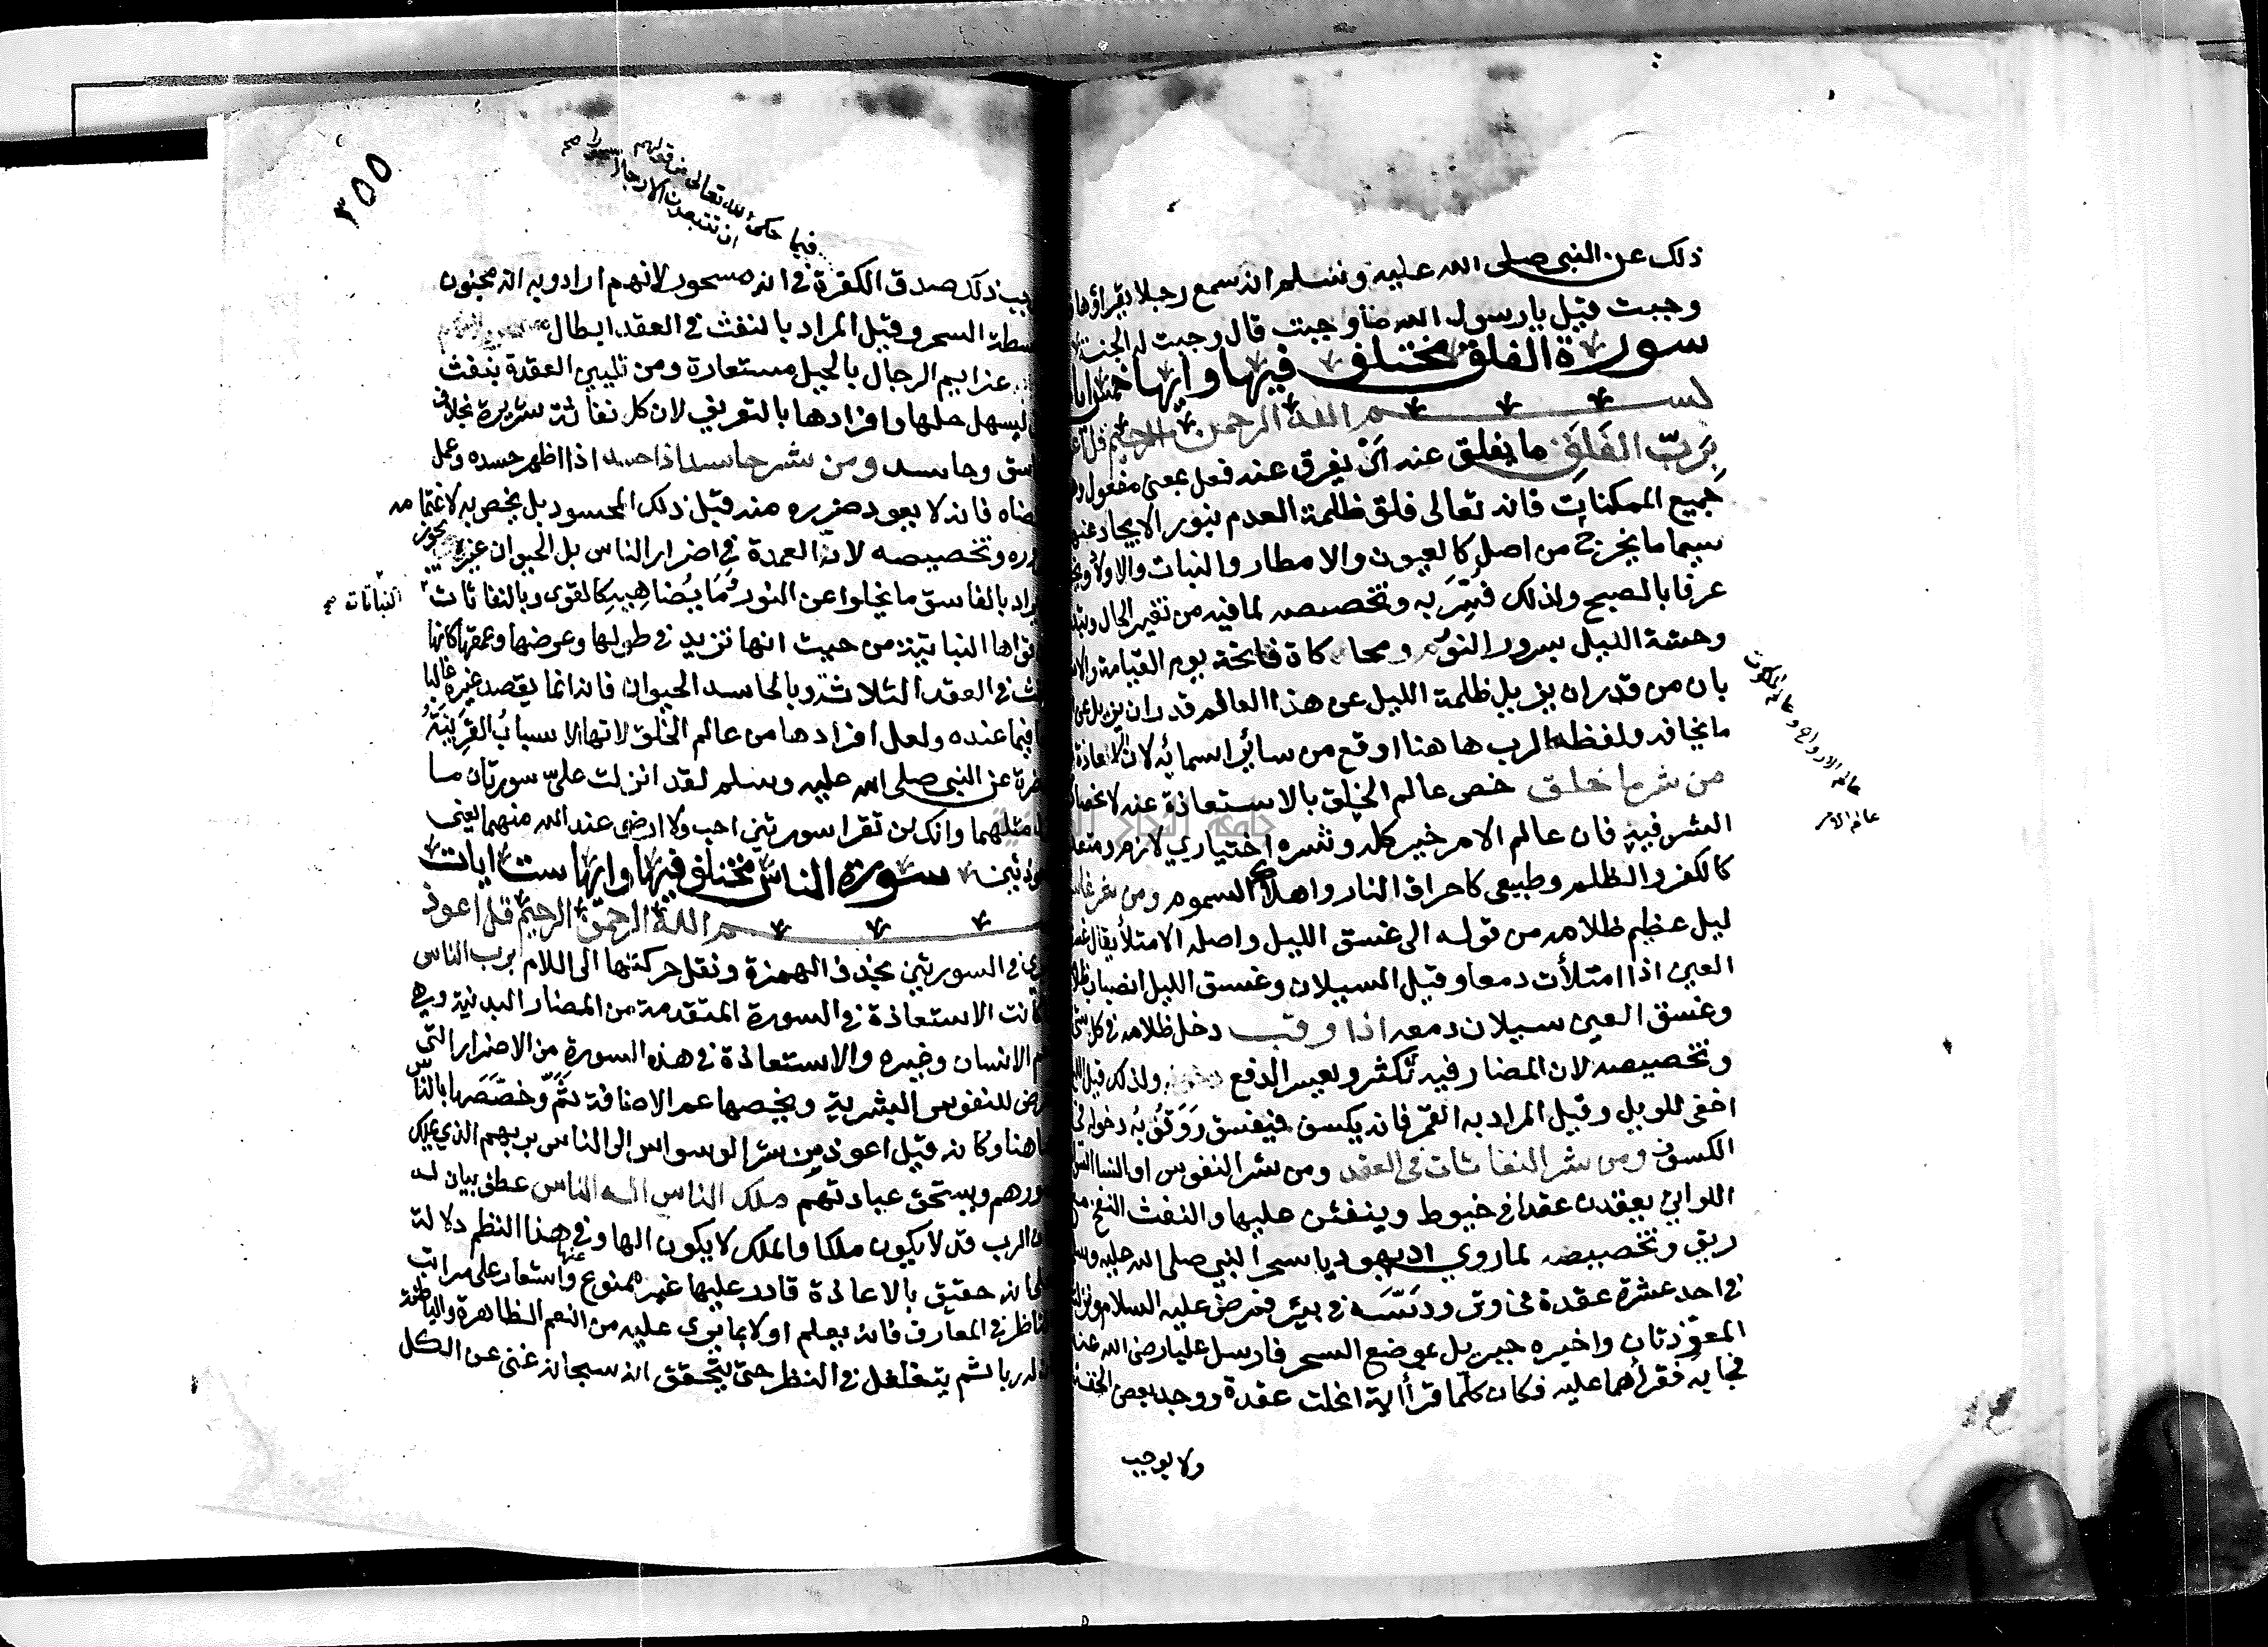 ذلك عن النبي صلى الله عليه وسلم انه سمع رجلا يقراؤها
وجبت قيل يا رسول الله ما وجبت قال وجبت له الجنة
سورة الفلق مختلف فيها وايها خمس ايات
بسم الله الرحمن الرحيم قل اعوذ
بِرَبِّ الفَلَقِ ما يفلق عنه اي يفرق عنه فعل بمعنى مفعول
جميع الممكنات فانه تعالى فلق ظلمة العدم بنور الايجاد عنها
سيما ما يخرج من اصل كالعيون والامطار والنبات والاولاد
عرفا بالصبح ولذلك فُسِّرَ به وتخصيصه لما فيه من تغير الحال
وحشة الليل بسرور النور ومحاكاة فاتحة يوم القيامة
بان من قدر ان يزيل ظلمة الليل عن هذا العالم قدر ان يزيل
ما يخافه ولفظ الرب هاهنا اوقع من سائر اسمائه لان الاعاذة
من شر ما خلق خص عالم الخلق بالاستعاذة عنه لانحصار
الشر فيه فان عالم الامر خير كله وشره اختياري لازم ومتعد
كالكفر والظلم وطبيعي كاحراق النار واهلاك السموم ومن شر غاسق
ليل عظيم ظلامه من قوله الى غسق الليل واصله الامتلأ يقال غسقت
العين اذا امتلأت دمعا وقيل السيلان وغسق الليل انصباب ظلامه
وغسق العين سيلان دمعه اذا وقب دخل ظلامه في كل شي
وتخصيصه لان المضار فيه تكثر ويعسر الدفع ولذلك قيل الليل
اخفى للويل وقيل المراد به القمر فانه يكسف فيغسق ووقوبه دخوله في
الكسوف ومن شر النفاثات في العقد ومن شر النفوس او النسا
اللواتي يعقدن عقدا في خيوط وينفثن عليها والنفث النفخ مع
ريق وتخصيصه لما روي ان يهوديا سحر النبي صلى الله عليه وسلم
في احد عشرة عقدة في وتر ودسّه في بئر فمرض عليه السلام ونزلت
المعوّذتان واخبره جبريل بموضع السحر فارسل عليا رضى الله عنه
فجا به فقرأهما عليه فكان كلما قرأ اية انحلت عقدة ووجد بعض الخفة
ولا يوجب
عالم الارواح وعالم الملكوت
عالم الامر
٣٥٥
فيما حكى الله تعالى من قولهم
ان تتبعون الا رجلا مسحورا صح
ذلك صدق الكفرة في انه مسحور لانهم ارادوا به انه مجنون
بواسطة السحر وقيل المراد بالنفث في العقد ابطال
عزايم الرجال بالحيل مستعارة ومن تليين العقدة بنفث
ليسهل حلها وافرادها بالتعريف لان كل نفاثة شريرة بخلاف
غاسق وحاسد ومن شر حاسد اذا حسد اذا اظهر حسده وعمل
بمقتضاه فانه لا يعود ضرره منه قبل ذلك المحسود بل يخص به لاغتمامه
بسروره وتخصيصه لانّ العمدة في اضرار الناس بل الحيوان غيره ويجوز
يراد بالغاسق ما يخلوا عن النور وَمَا يُضاهِيهِ كالقوى وبالنفاثات
النباتات صح
قواها النباتية من حيث انها تزيد في طولها وعرضها وعمقها كانها
تنفث في العقد الثلاثة وبالحاسد الحيوان فانه انما يقصد غيره غالبا
فيما عنده ولعل افرادها من عالم الخلق لانها الاسبابُ القريبَةُ
للمضرة عن النبي صلى الله عليه وسلم لقد انزلت عليّ سورتان ما
مثلهما وانك لن تقرا سورتين احب ولا ارضى عند الله منهما يعنى
المعوذتين سورة الناس مختلف فيها وايها ست ايات
بسم الله الرحمن الرحيم قل اعوذ
في السورتين بحذف الهمزة ونقل حركتها الى اللام برب الناس
كانت الاستعاذة في السورة المتقدمة من المضار البدنية وهي
تعم الانسان وغيره والاستعاذة في هذه السورة من الاضرار التي
تعرض للنفوس البشرية ويخصها عم الاضافة ثَمَّ وخصّصَها بالناس
هاهنا وكانه قيل اعوذ من شر الوسواس الى الناس بربهم الذي يملك
امورهم ويستحق عبادتهم ملك الناس اله الناس عطف بيان له
فان الرب قد لا يكون ملكا والملك لا يكون الها وفي هذا النظم دلالة
على انه حقيق بالاعاذة قادر عليها غير ممنوع عنها واشعار على مراتب
الناظر في المعارف فانه يعلم اولا بما يرى عليه من النعم الظاهرة والباطنة
ان له ربا ثم يتغلغل في النظر حتى يتحقق انه سبحانه غنى عن الكل